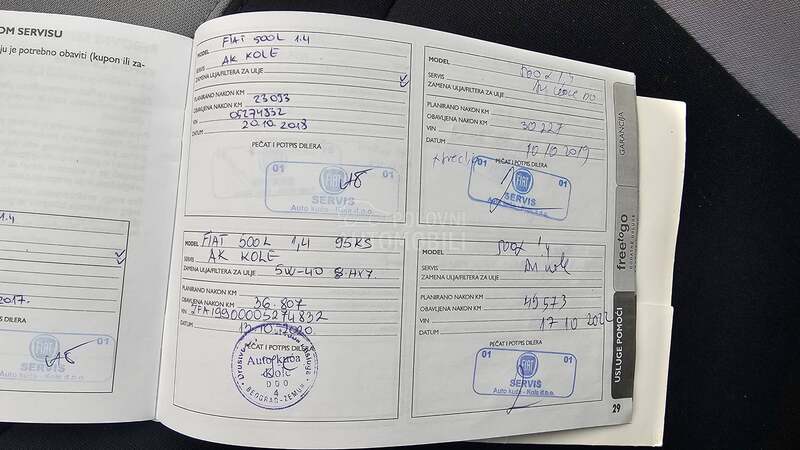 OM SERVISU
ju je potrebno obaviti (kupon ili za-
1.4
2017.
PIS DILERA
01
SERVIS
Auto kuća - Kole d.o.o.
MODEL FIAT 500L 1.4
SERVIS AK KOLE
ZAMENA ULJA/FILTERA ZA ULJE
PLANIRANO NAKON KM
OBAVLJENA NAKON KM 23093
VIN 05274832
DATUM 20.10.2018
PEČAT I POTPIS DILERA
01 FIAT 01
SERVIS
Auto kuća - Kole d.o.o.
MODEL FIAT 500L 1,4 95KS
SERVIS AK KOLE
ZAMENA ULJA/FILTERA ZA ULJE 5W-40
PLANIRANO NAKON KM
OBAVLJENA NAKON KM 36.807
VIN ZFA19900005274832
DATUM 13.10.2020
PEČAT I POTPIS DILERA
Auto kuća
Kole
DOO
4
BEOGRAD-ZEMUN
MODEL
SERVIS
ZAMENA ULJA/FILTERA ZA ULJE
PLANIRANO NAKON KM
OBAVLJENA NAKON KM 30227
VIN
DATUM 10 10 2019
PEČAT I POTPIS DILERA
01 FIAT 01
SERVIS
Auto kuća - Kole d.o.o.
MODEL
SERVIS
ZAMENA ULJA/FILTERA ZA ULJE
PLANIRANO NAKON KM
OBAVLJENA NAKON KM 49573
VIN
DATUM 17 10 2022
PEČAT I POTPIS DILERA
01 FIAT 01
SERVIS
Auto kuća - Kole d.o.o.
GARANCIJA
freetogo
DODATNE USLUGE
USLUGE POMOĆI
29
POLOVNI
AUTOMOBILI